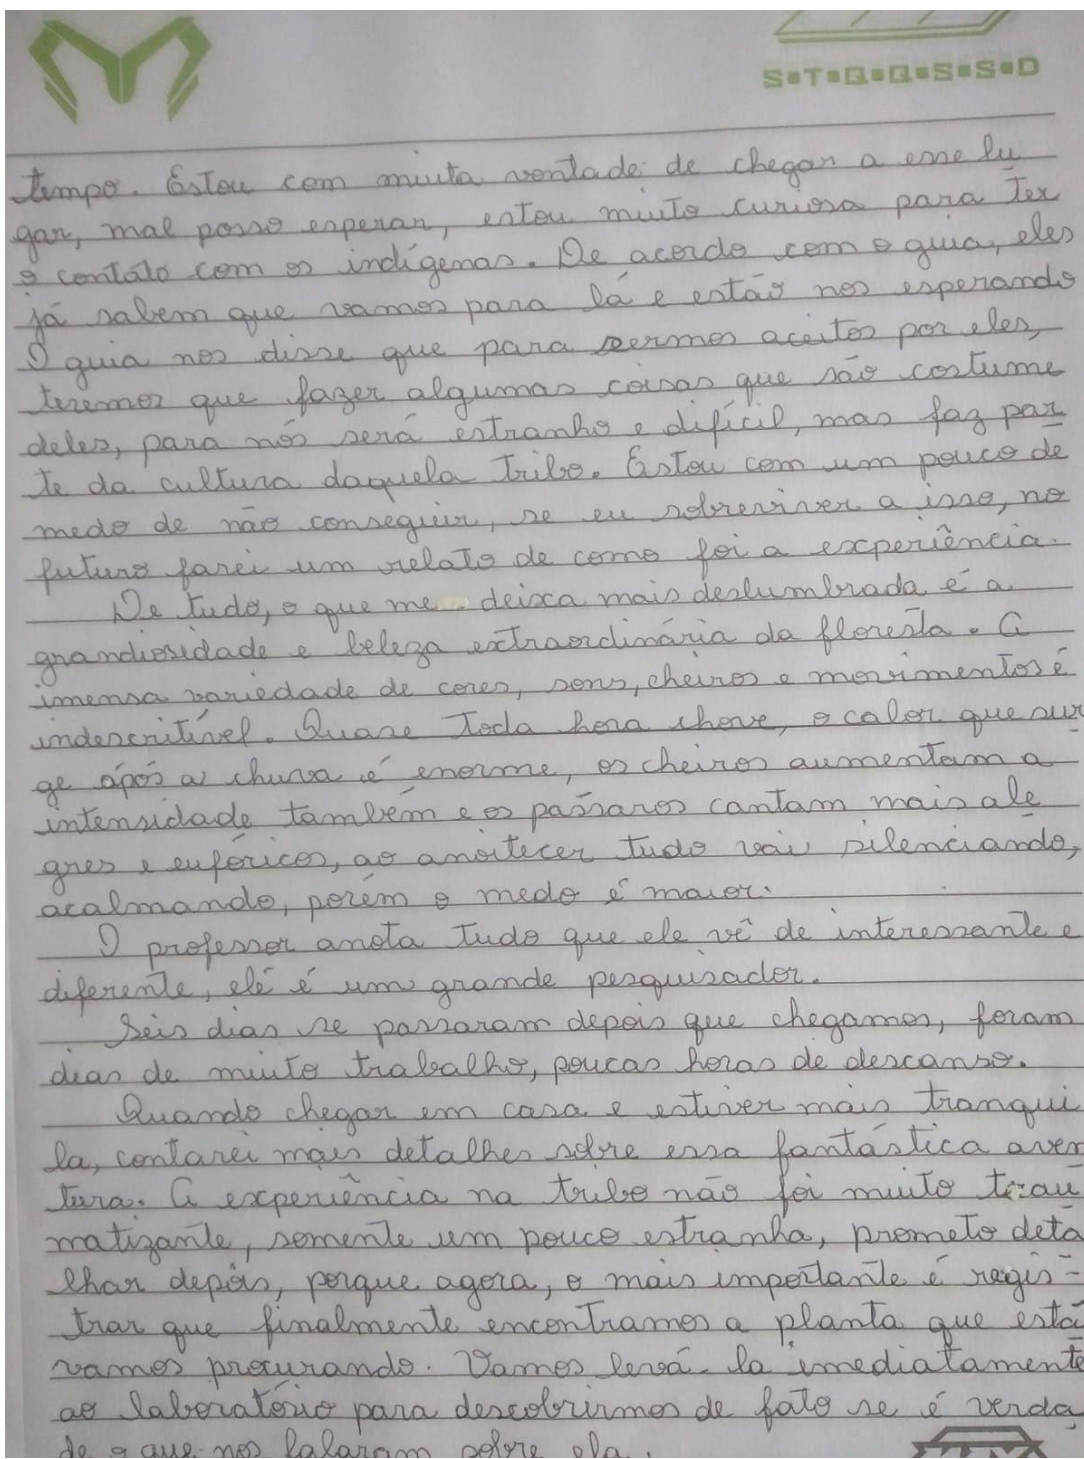 S T Q Q S S D
tempo. Estou com muita vontade de chegar a esse lu
gar, mal posso esperar, estou muito curiosa para ter
o contato com os indígenas. De acordo com o guia, eles
já sabem que vamos para lá e estão nos esperando
O guia nos disse que para sermos aceitos por eles,
teremos que fazer algumas coisas que são costume
deles, para nós será estranho e difícil, mas faz par
te da cultura daquela tribo. Estou com um pouco de
medo de não conseguir, se eu sobreviver a isso, no
futuro farei um relato de como foi a experiência.
De tudo, o que me deixa mais deslumbrada é a
grandiosidade e beleza extraordinária da floresta. A
imensa variedade de cores, sons, cheiros e movimentos é
indescritível. Quase toda hora chove, o calor que sur
ge após a chuva é enorme, os cheiros aumentam a
intensidade também e os pássaros cantam mais ale
gres e eufóricos, ao anoitecer tudo vai silenciando,
acalmando, porém o medo é maior.
O professor anota tudo que ele vê de interessante e
diferente, ele é um grande pesquisador.
Seis dias se passaram depois que chegamos, foram
dias de muito trabalho, poucas horas de descanso.
Quando chegar em casa e estiver mais tranqui
la, contarei mais detalhes sobre essa fantástica aven
tura. A experiência na tribo não foi muito trau
matizante, somente um pouco estranha, prometo deta
lhar depois, porque agora, o mais importante é regis-
trar que finalmente encontramos a planta que está
vamos procurando. Vamos levá-la imediatamente
ao laboratório para descobrirmos de fato se é verda
de o que nos falaram sobre ela.